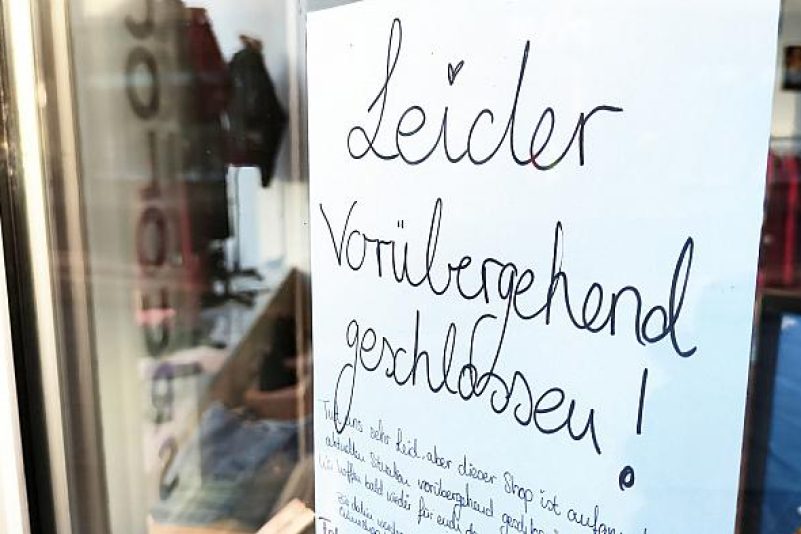 Leider
vorübergehend
geschlossen!
Tut uns sehr leid, aber dieser Shop ist aufgru
aktuellen Situation vorübergehend geschlo
Wir hoffen bald wieder für euch da
Bis dahin